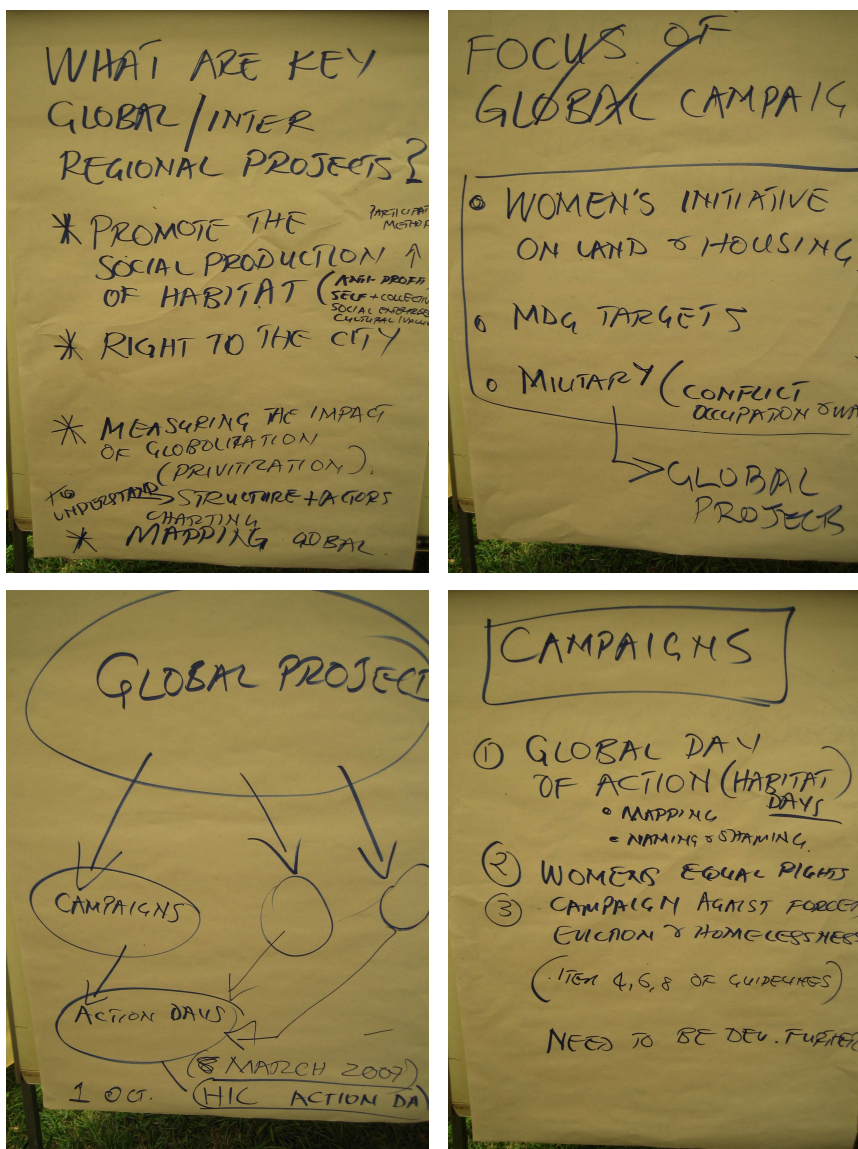 WHAT ARE KEY
GLOBAL/INTER
REGIONAL PROJECTS?
* PROMOTE THE
SOCIAL PRODUCTION
OF HABITAT (ANTI-PROFIT
SELF + COLLECTIV
SOCIAL ENTERPRES
CULTURAL/VALU
PARTICIPAT
METHOD
* RIGHT TO THE CITY
* MEASURING THE IMPACT
OF GLOBOLIZATION
(PRIVITIZATION).
TO UNDERSTAND → STRUCTURE + ACTORS
CHARTING
* MAPPING GOBAL
FOCUS OF
GLOBAL CAMPAIG
• WOMEN'S INITIATIVE
ON LAND & HOUSING
• MDG TARGETS
• MILITARY (CONFLICT
OCCUPATON & WA
→ GLOBAL
PROJECTS
GLOBAL PROJECT
CAMPAIGNS
ACTION DAYS
(8 MARCH 2007)
1 OCT. (HIC ACTION DA
CAMPAIGNS
① GLOBAL DAY
OF ACTION (HABITAT)
DAYS
• MAPPING
• NAMING & SHAMING.
② WOMENS EQUAL RIGHTS
③ CAMPAIGN AGAIST FORCE
EVICTION & HOMELESSNESS
(ITEM 4, 6, 8 OF GUIDELINES)
NEED TO BE DEV. FURTHE